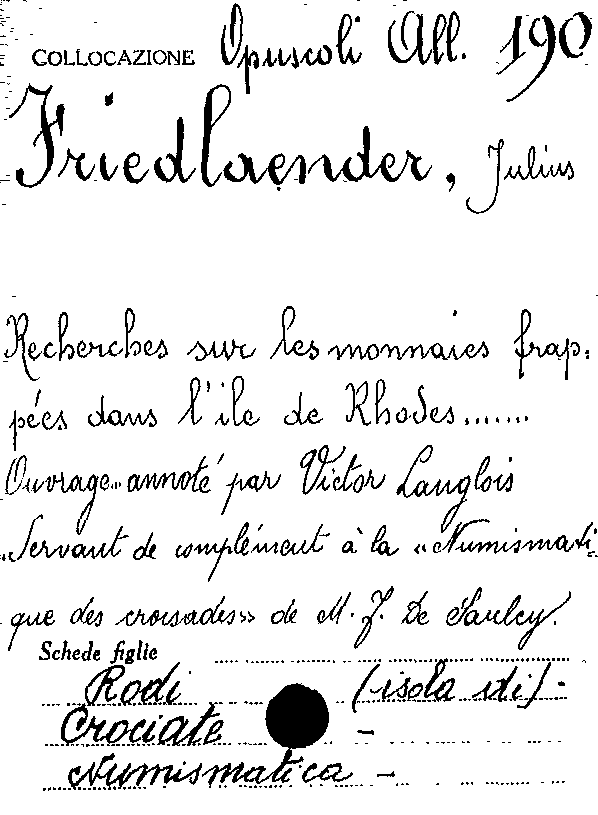 COLLOCAZIONE Opuscoli All. 190
Friedlaender, Julius
Recherches sur les monnaies frap:
pées dans l'ile de Rhodes.......
Ouvrage.. annoté par Victor Langlois
„Servant de complément à la «Numismati-
que des croisades» de M. J. De Saulcy.
Schede figlie
Rodi (isola di) -
Crociate -
Numismatica -